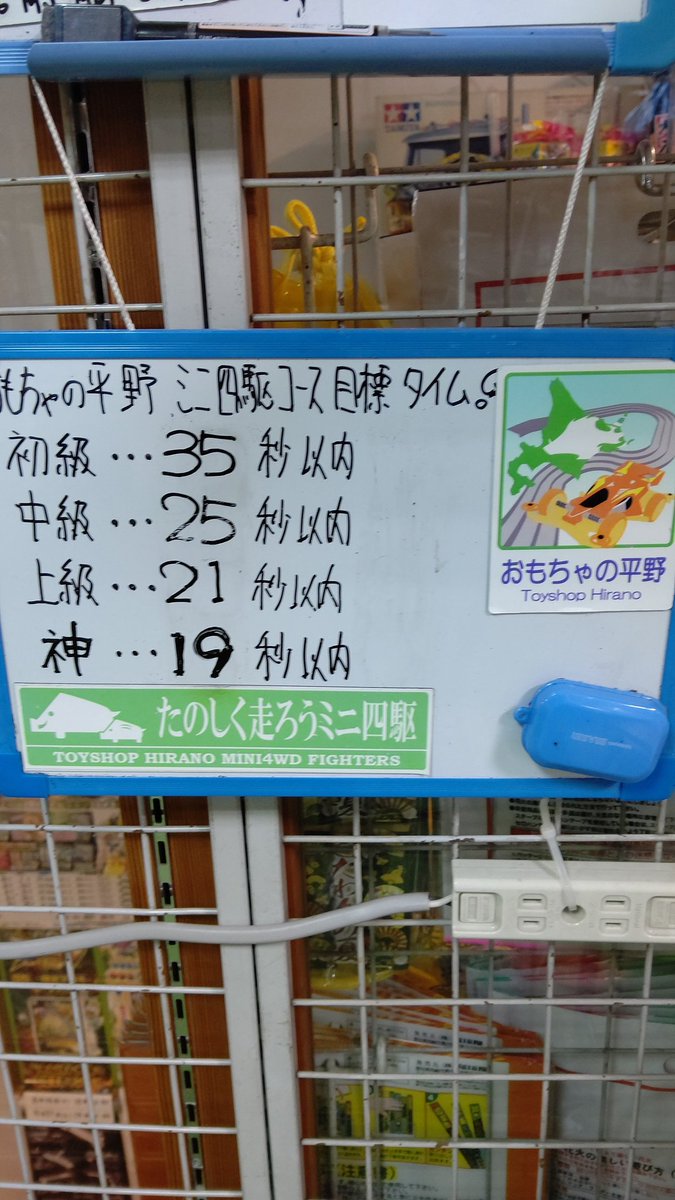 TAMIYA
おもちゃの平野 ミニ四駆コース目標タイム。
初級…35 秒以内
中級…25 秒以内
上級…21 秒以内
神…19 秒以内
おもちゃの平野
Toyshop Hirano
たのしく走ろうミニ四駆
TOYSHOP HIRANO MINI4WD FIGHTERS